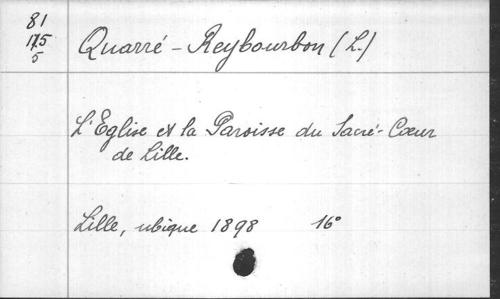 81
175
5
Quarré-Reybourbon (L.)
L'Église et la Paroisse du Sacré-Cœur
de Lille.
Lille, ubique 1898 16°